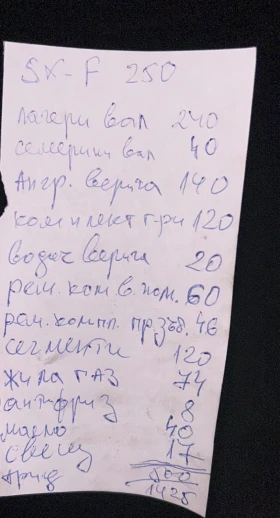 SX-F 250
лагери вал 240
семеринги вал 40
Ангр. верига 140
комплект гри 120
водач верига 20
рем. ком в. пом. 60
рем. компл. пр. зъб. 46
сегменти 120
жила газ 74
антифриз 8
масло 40
свещ 17
500
1425